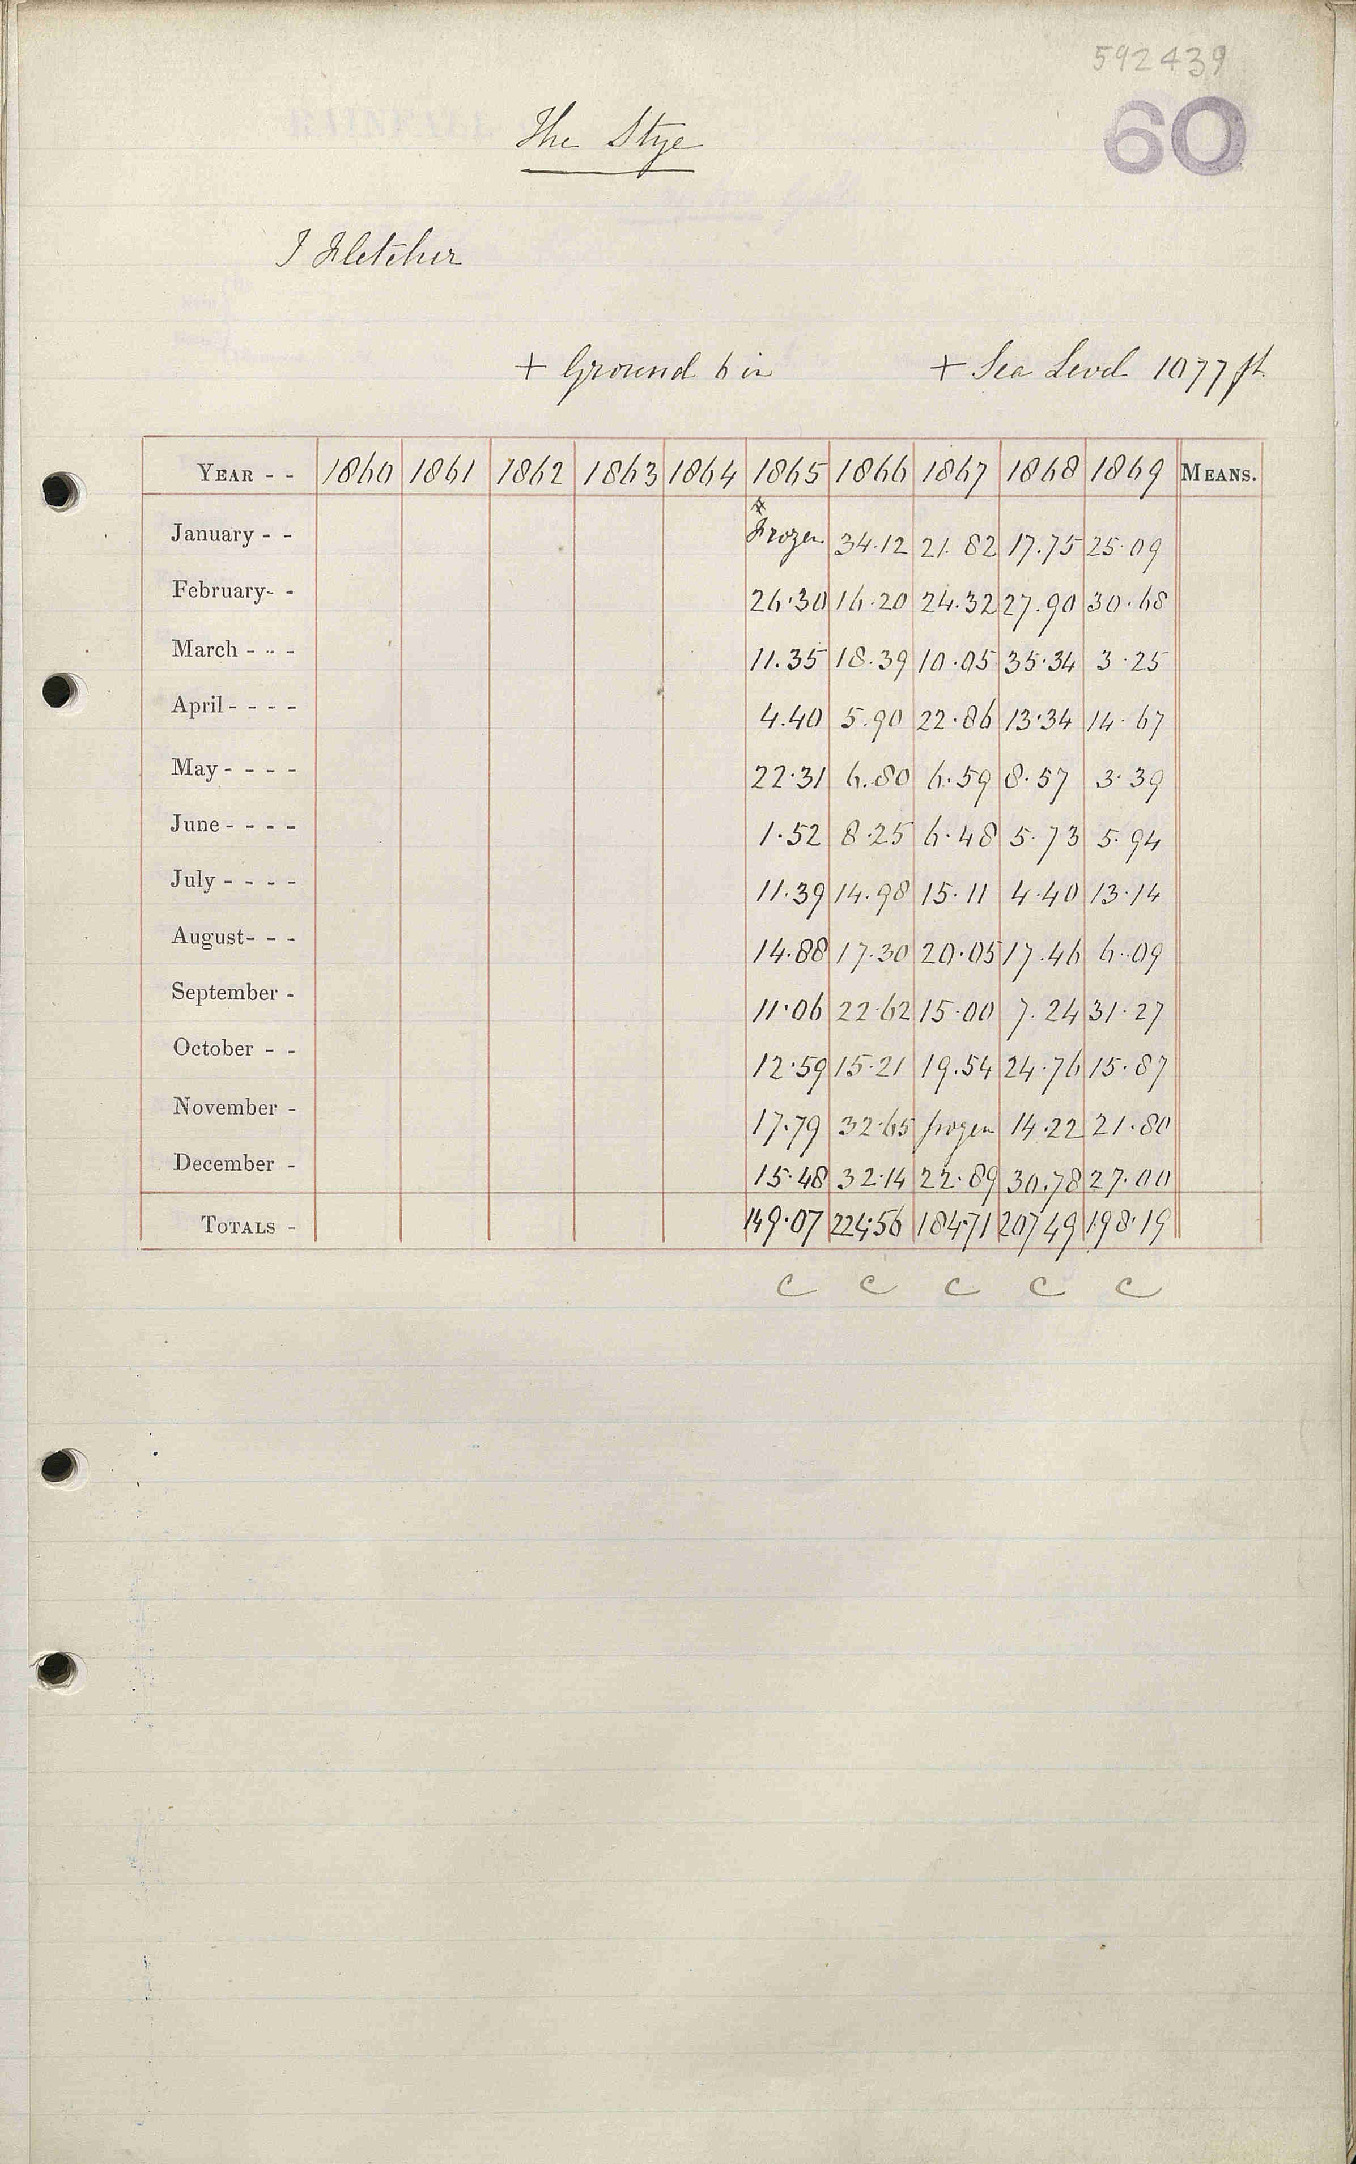 592439
60
The Stye
I Fletcher
+ Ground 6 in + Sea Level 1077 ft
YEAR - - 1860 1861 1862 1863 1864 1865 1866 1867 1868 1869 MEANS.
January - - Frozen 34.12 21.82 17.75 25.09
February- - 26.30 16.20 24.32 27.90 30.68
March - - - 11.35 18.39 10.05 35.34 3.25
April - - - - 4.40 5.90 22.86 13.34 14.67
May - - - - 22.31 6.80 6.59 8.57 3.39
June - - - - 1.52 8.25 6.48 5.73 5.94
July - - - - 11.39 14.98 15.11 4.40 13.14
August- - - 14.88 17.30 20.05 17.46 6.09
September - 11.06 22.62 15.00 7.24 31.27
October - - 12.59 15.21 19.54 24.76 15.87
November - 17.79 32.65 frozen 14.22 21.80
December - 15.48 32.14 22.89 30.78 27.00
TOTALS - 149.07 224.56 184.71 207.49 198.19
c c c c c